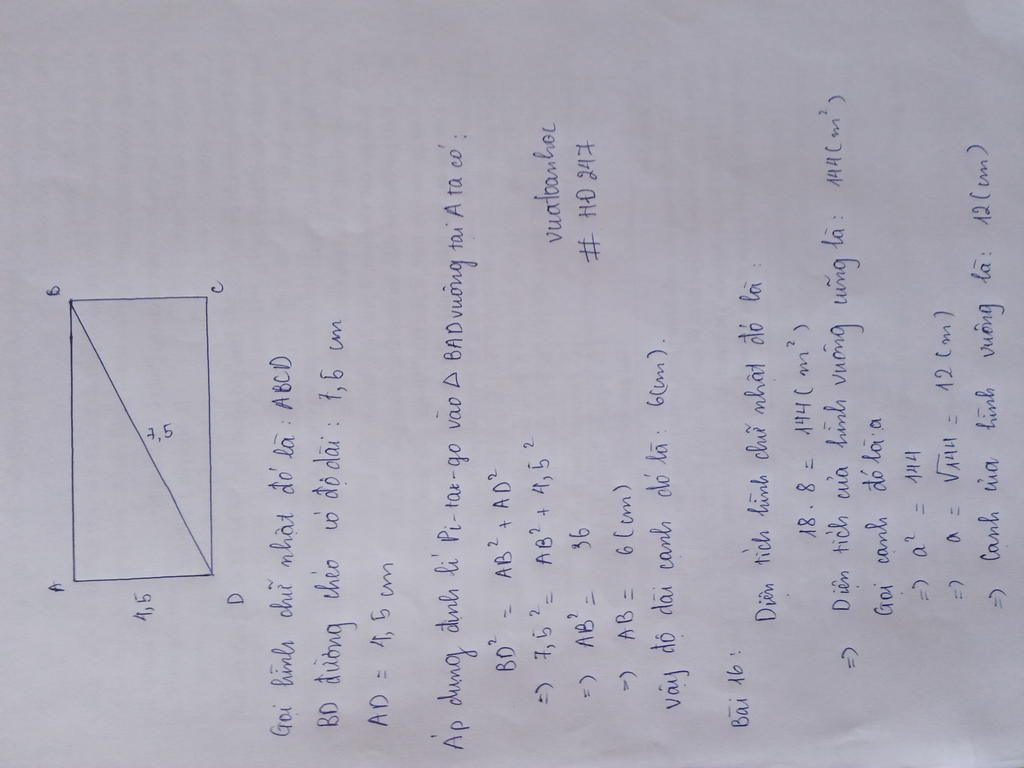 A
B
4,5
7,5
D
C
Gọi hình chữ nhật đó là : ABCD
BD đường chéo có độ dài : 7,5 cm
AD = 4,5 cm
Áp dụng định lí Pi-tar-go vào Δ BAD vuông tại A ta có :
BD² = AB² + AD²
=> 7,5² = AB² + 4,5²
=> AB² = 36
=> AB = 6 (cm)
vuatoanhoc
# HĐ 247
vậy độ dài cạnh đó là : 6(cm).
Bài 16 :
Diện tích hình chữ nhật đó là :
18 . 8 = 144 ( m²)
=> Diện tích của hình vuông cũng là : 144 ( m²)
Gọi cạnh đó là : a
=> a² = 144
=> a = √144 = 12 ( m)
=> Cạnh của hình vuông là : 12 ( m)